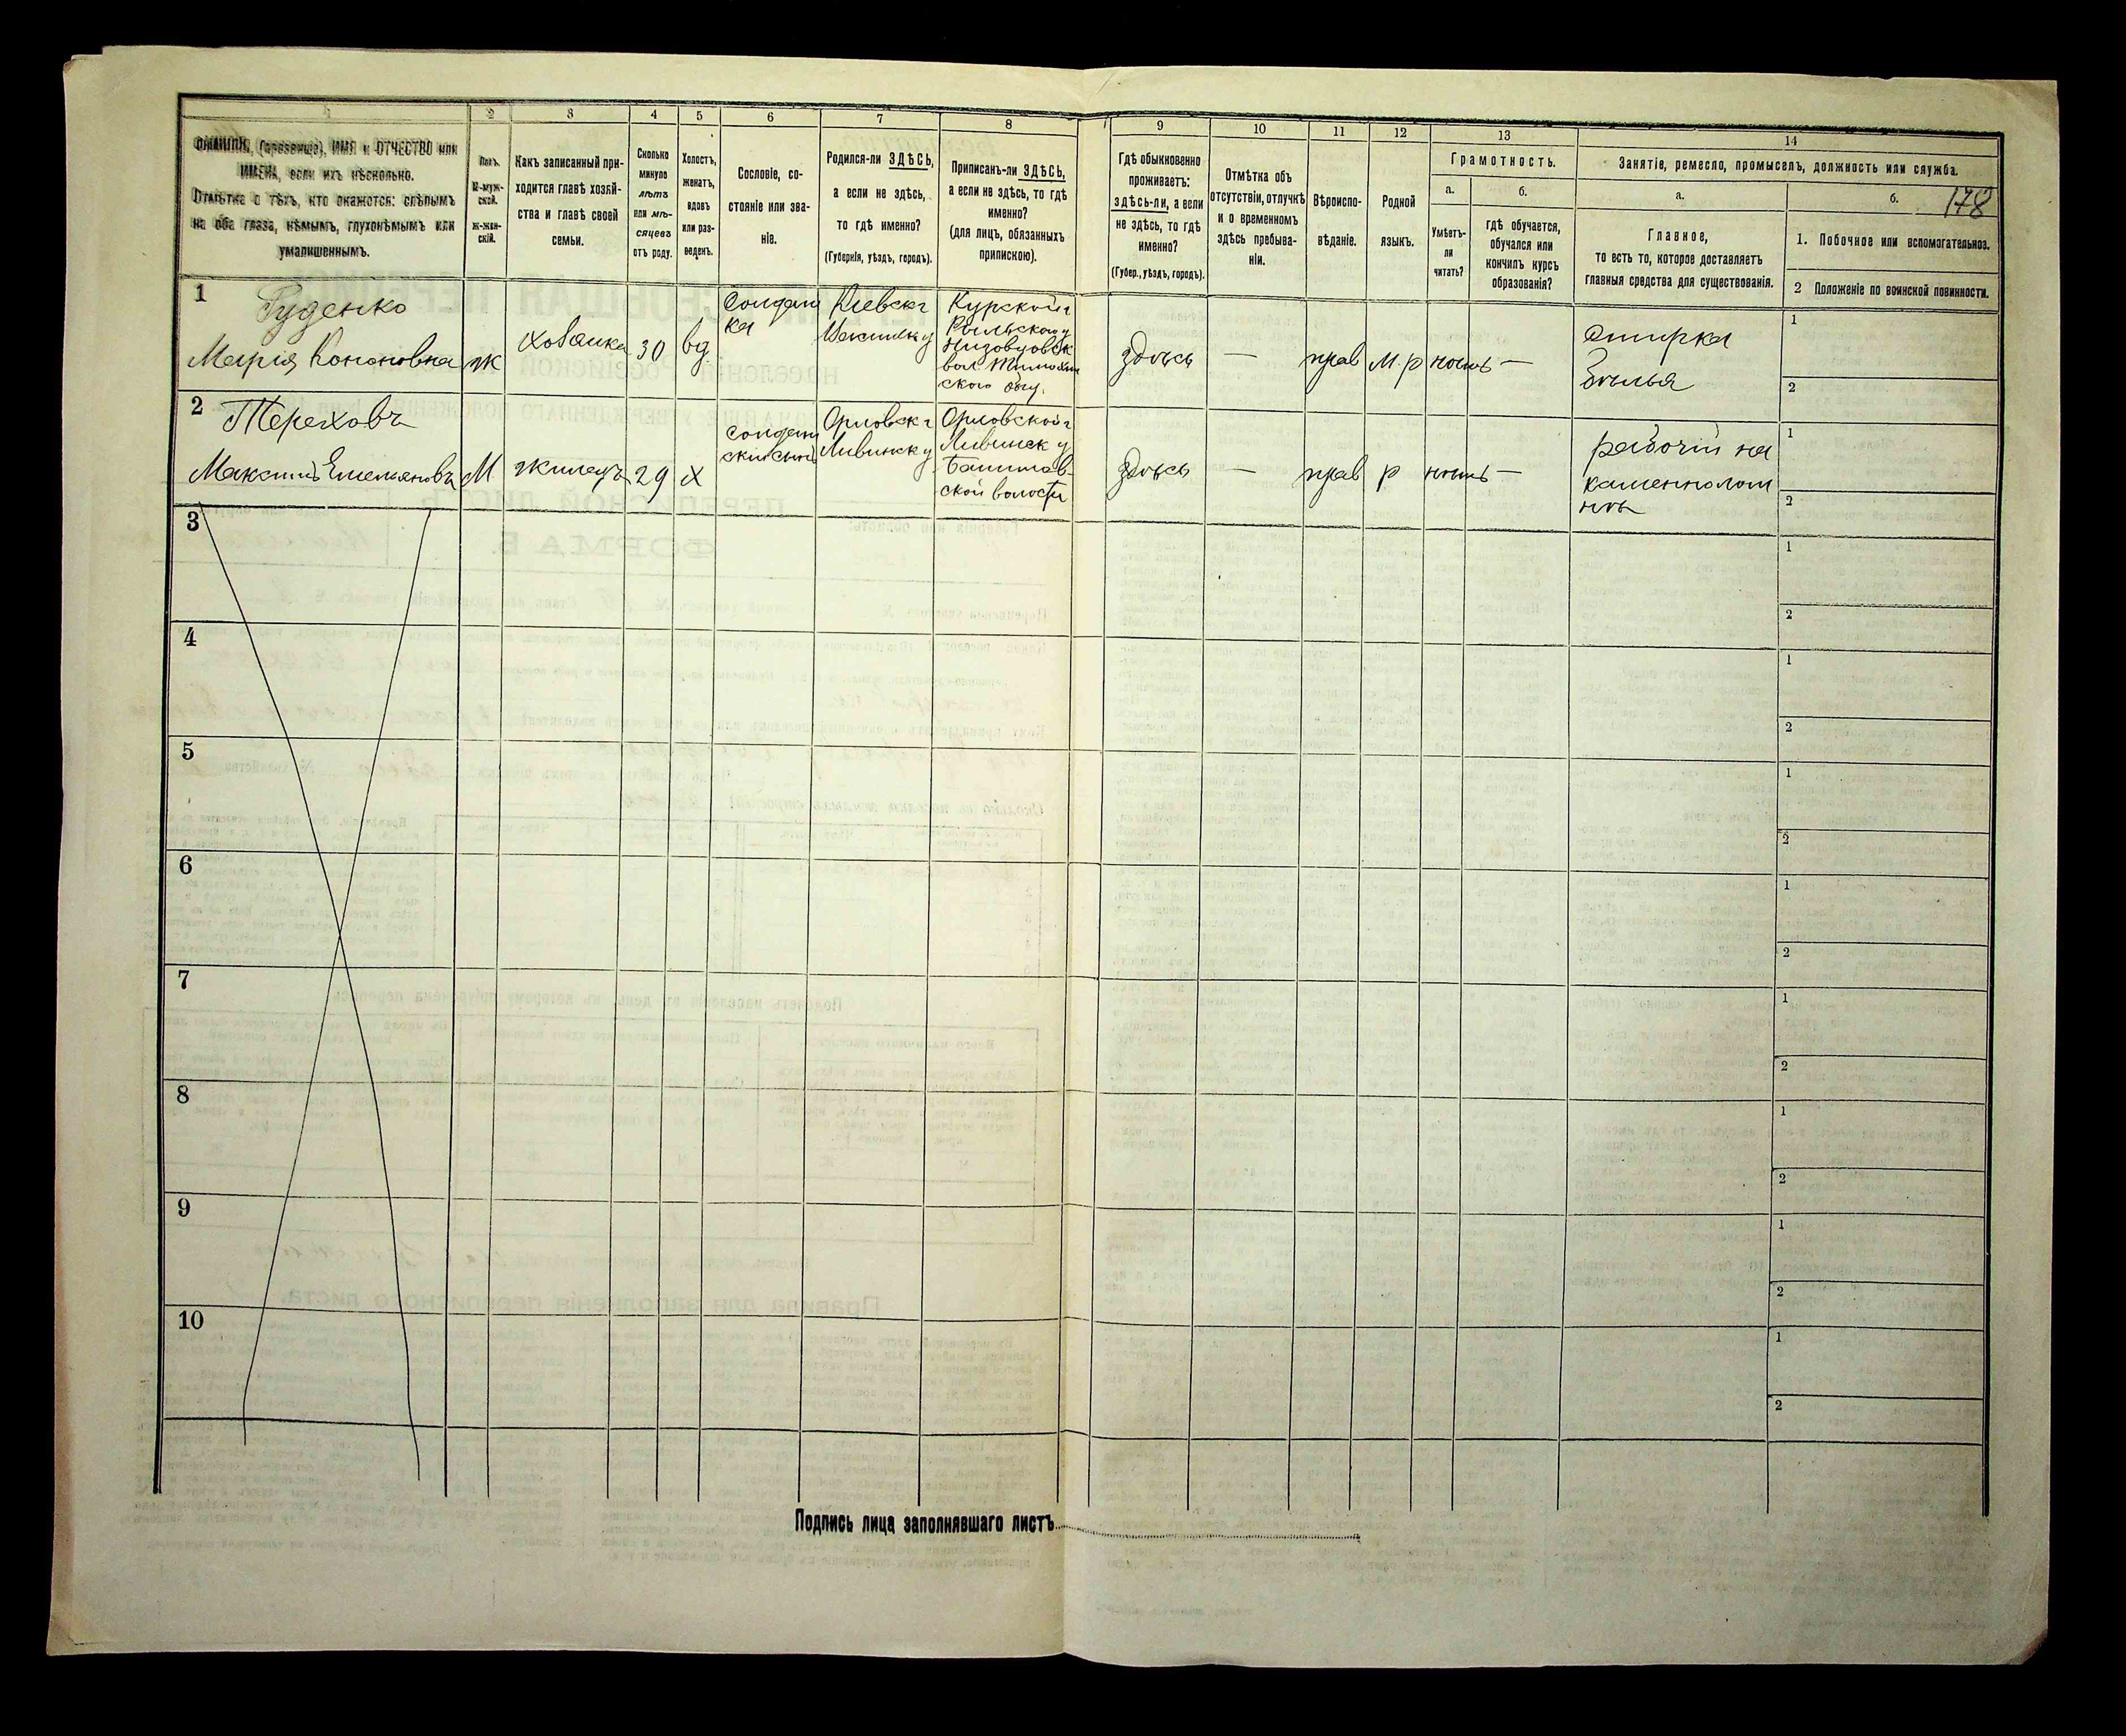 1 2 3 4 5 6 7 8 9 10 11 12 13 14
ФАМИЛІЯ, (прозвище), ИМЯ и ОТЧЕСТВО или
ИМЕНА, если ихъ нѣсколько.
Отмѣтка о тѣхъ, кто окажется: слѣпымъ
на оба глаза, нѣмымъ, глухонѣмымъ или
умалишеннымъ.
Полъ.
М-муж-
ской.
Ж-жен-
скій.
Какъ записанный при-
ходится главѣ хозяй-
ства и главѣ своей
семьи.
Сколько
минуло
лѣтъ
или мѣ-
сяцевъ
отъ роду.
Холостъ,
женатъ,
вдовъ
или раз-
веденъ.
Сословіе, со-
стояніе или зва-
ніе.
Родился-ли ЗДѢСЬ,
а если не здѣсь,
то гдѣ именно?
(Губернія, уѣздъ, городъ).
Приписанъ-ли ЗДѢСЬ,
а если не здѣсь, то гдѣ
именно?
(для лицъ, обязанныхъ
припискою).
Гдѣ обыкновенно
проживаетъ:
здѣсь-ли, а если
не здѣсь, то гдѣ
именно?
(Губер., уѣздъ, городъ).
Отмѣтка объ
отсутствіи, отлучкѣ
и о временномъ
здѣсь пребыва-
ніи.
Вѣроиспо-
вѣданіе.
Родной
языкъ.
Грамотность.
а.
Умѣетъ-
ли
читать?
б.
гдѣ обучается,
обучался или
кончилъ курсъ
образованія?
Занятіе, ремесло, промыселъ, должность или служба.
а.
Главное,
то есть то, которое доставляетъ
главныя средства для существованія.
б. 178
1. Побочное или вспомогательное.
2 Положеніе по воинской повинности.
1
Руденко
Марія Кононовна
ж
хозяйка
30
вд
Солдат
ка
Кіевск г
Курской г
Рыльскаго у
здѣсь
—
прав
м.р
нѣтъ
—
Стирка
бѣлья
1
2
2
Тереховъ
Максимъ Емельяновъ
М
жилецъ
29
х
солдат
скій сынъ
Орловск г
Ливинск у
Орловской г
Ливинск у
ской волости
здѣсь
—
прав
р
нѣтъ
—
рабочій на
каменнолом
нѣ
1
2
3
1
2
4
1
2
5
1
2
6
1
2
7
1
2
8
1
2
9
1
2
10
1
2
Подпись лица заполнявшаго листъ